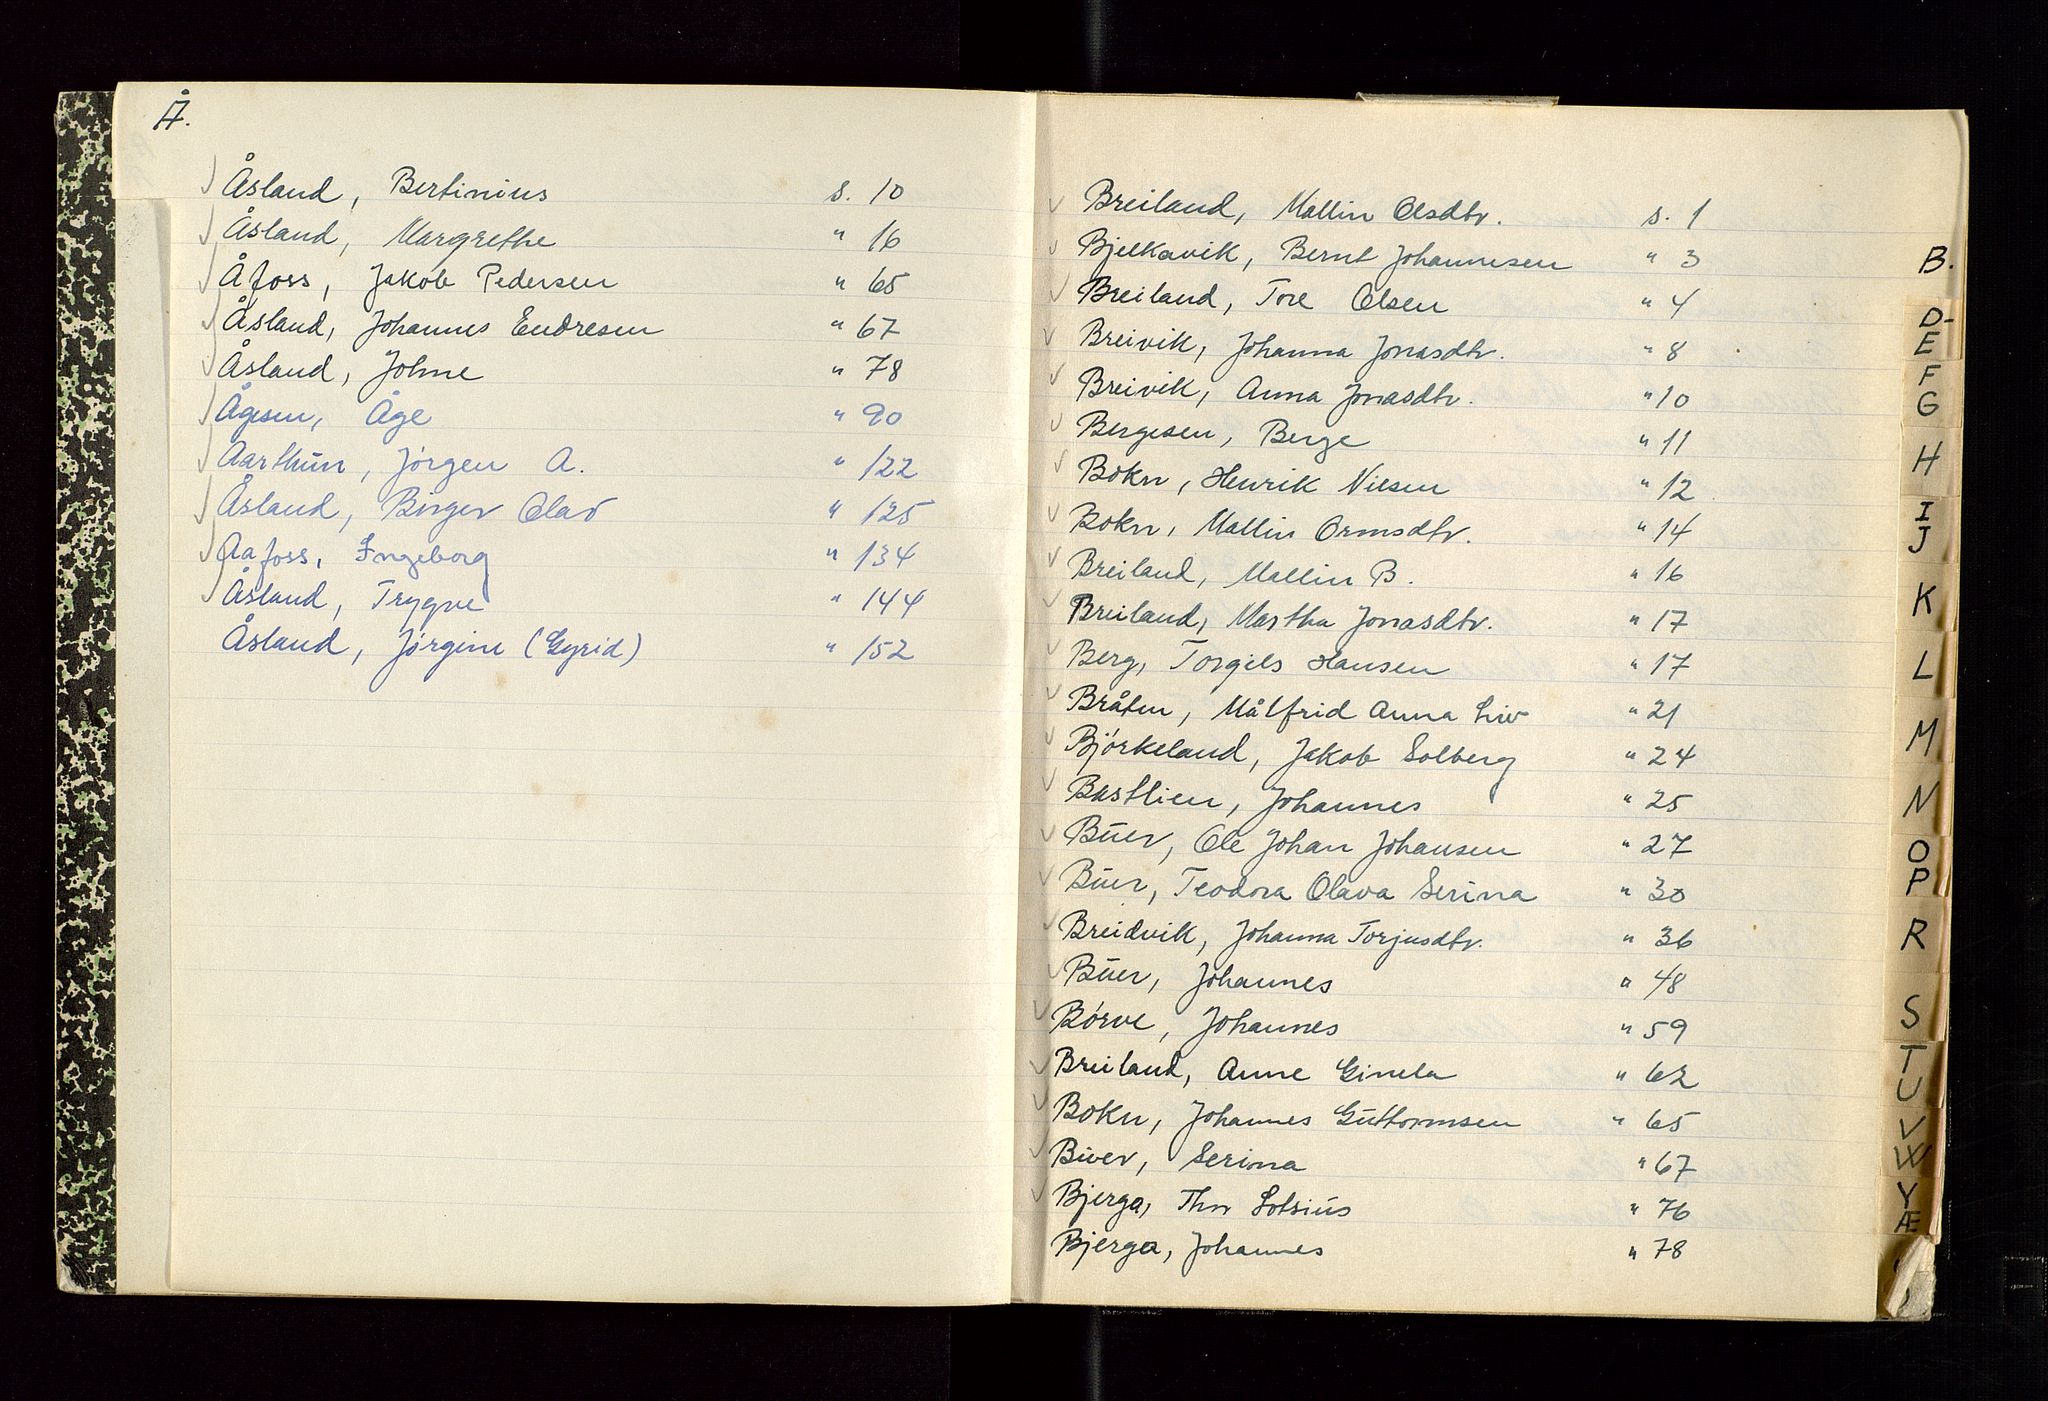 Å.
Åsland, Bertinius s. 10
Åsland, Margrethe " 16
Åfoss, Jakob Pedersen " 65
Åsland, Johannes Endresen " 67
Åsland, Johne " 78
Ågesen, Åge " 90
Aarthun, Jørgen A. " 122
Åsland, Birger Olav " 125
Aafoss, Ingeborg " 134
Åsland, Trygve " 144
Åsland, Jørgine (Gyrid) " 152
Breiland, Mallin Olsdtr. s. 1
Bjelkavik, Bernt Johannesen " 3
Breiland, Tore Olsen " 4
Breivik, Johanna Jonasdtr. " 8
Breivik, Anna Jonasdtr. " 10
Bergesen, Berge " 11
Bokn, Henrik Nilsen " 12
Bokn, Mallin Ormsdtr. " 14
Breiland, Mallin B. " 16
Breiland, Martha Jonasdtr. " 17
Berg, Torgils Hansen " 17
Bråten, Målfrid Anna Liv " 21
Bjørkeland, Jakob Solberg " 24
Bastlien, Johannes " 25
Buer, Ole Johan Johansen " 27
Buer, Teodora Olava Serina " 30
Breidvik, Johanna Torjusdtr. " 36
Buer, Johannes " 48
Børve, Johannes " 59
Breiland, Anne Ginela " 62
Bokn, Johannes Guttormsen " 65
Buer, Serina " 67
Bjerga, Thor Sotsius " 76
Bjerga, Johannes " 78
B.
D-
E
F
G
H
I
J
K
L
M
N
O
P
R
S
T
U
V
W
Y
Æ